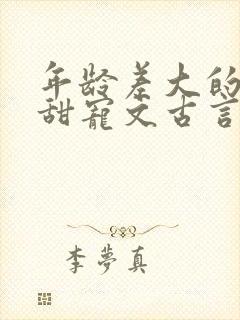 年龄差大的
甜寵文古言
李夢真